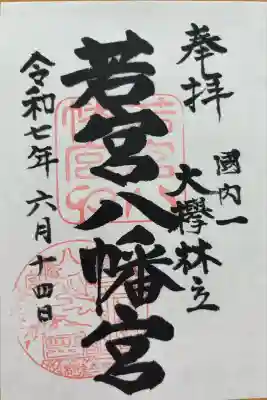 奉拝
國内一
大欅林立
若宮八幡宮
令和七年 六月十四日